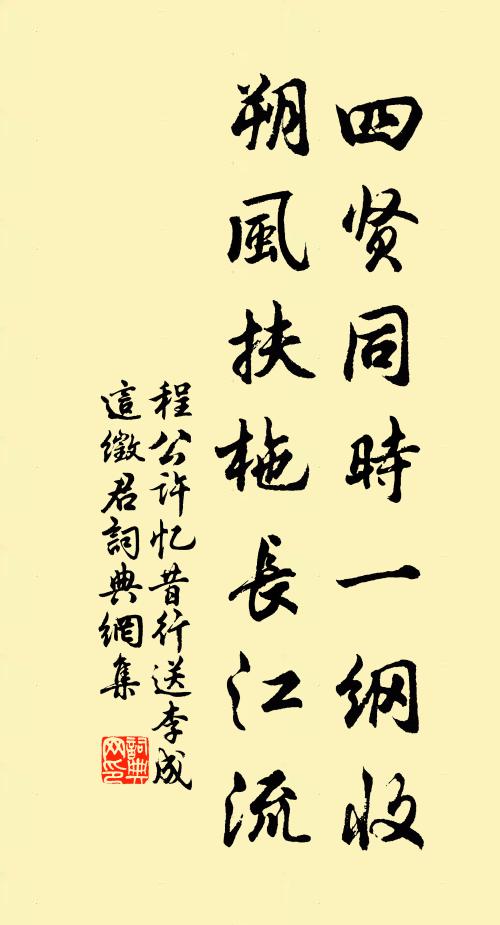 四贤同時一纲收
朔風扶柂長江流
程公许忆昔行送李成
這徵君詞典網集
詞典网印